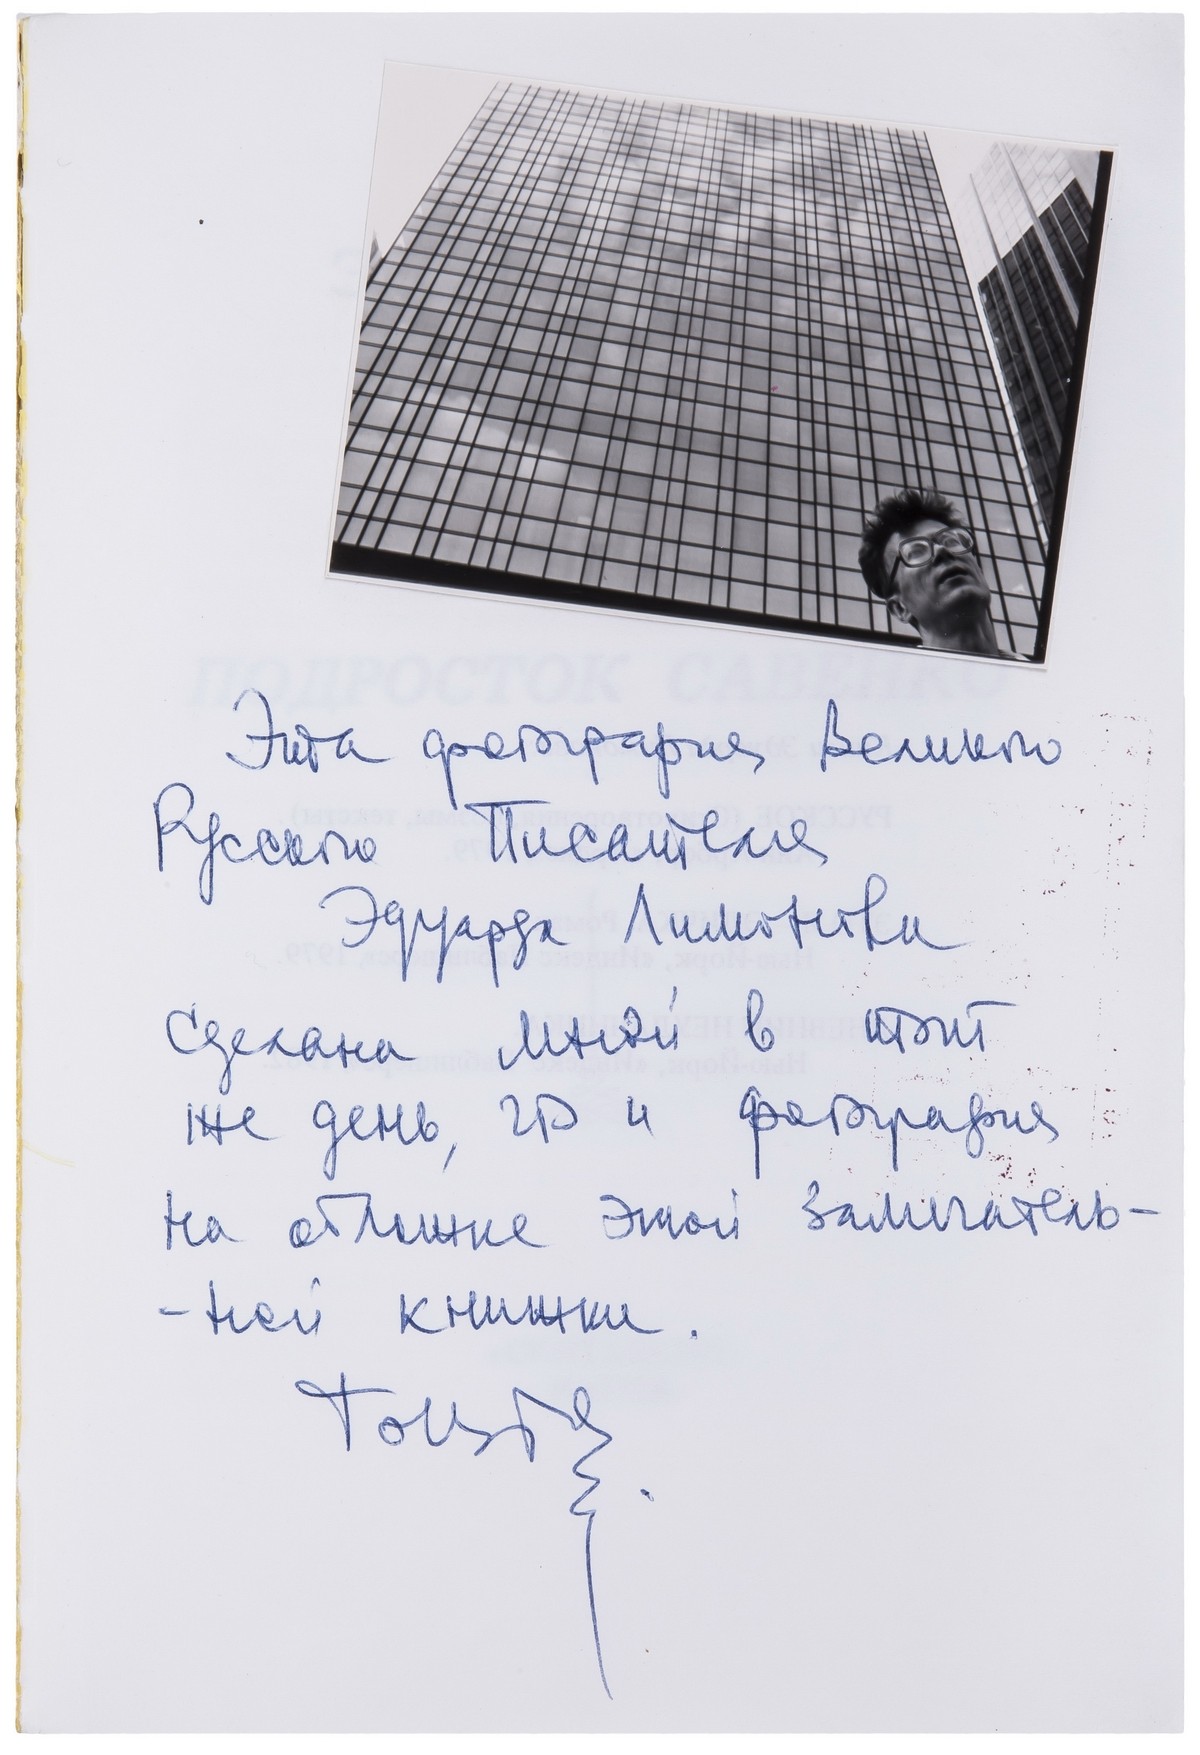 Эта фотография Великого
Русского Писателя
Эдуарда Лимонова
сделана мной в тот
же день, что и фотография
на обложке этой замечатель-
-ной книжки.
ПОДРОСТОК САВЕНКО